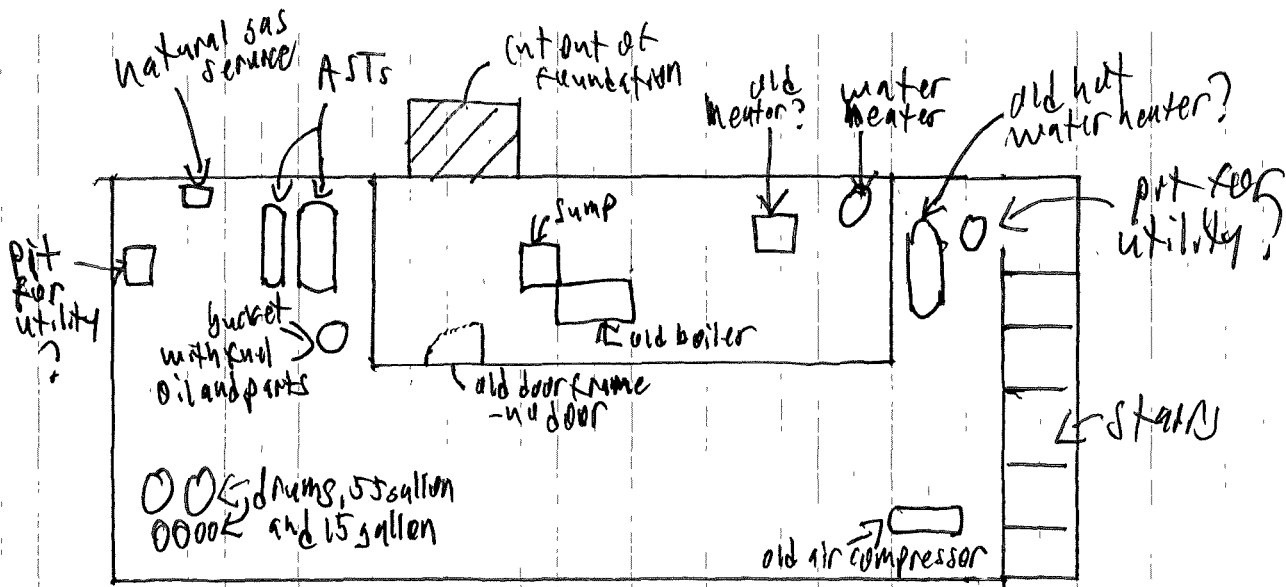 natural gas
service
ASTs
cut out of
foundation
old
heater?
water
heater
old hot
water heater?
pit for
utility?
pit
for
utility
?
sump
old boiler
bucket
with fuel
oil and parts
old door frame
- no door
stairs
drums, 55 gallon
and 15 gallon
old air compressor